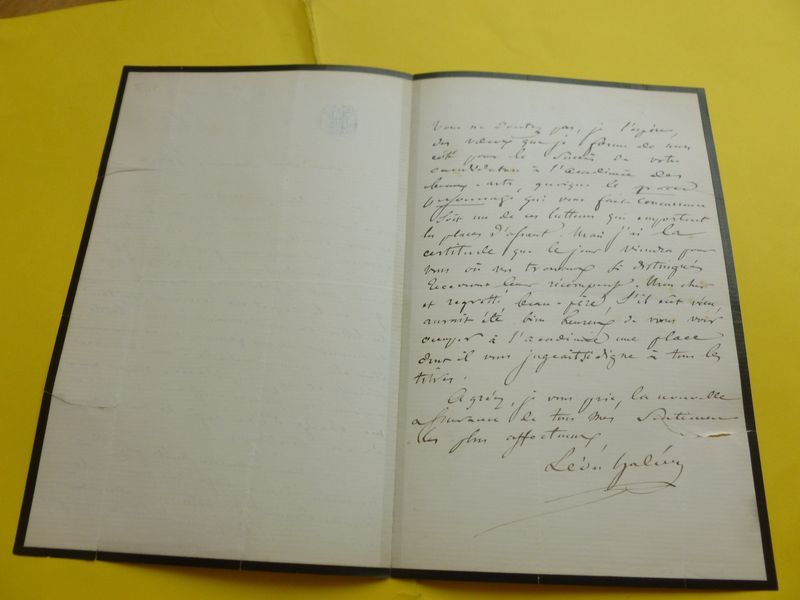 Vous ne doutez pas, je l'espère,
des vœux que je forme de mon
côté pour le succès de votre
candidature à l'Académie des
beaux-arts, quoique le grand
personnage qui vous fait concurrence
soit un de ces lutteurs qui emportent
les places d'assaut. Mais j'ai la
certitude que le jour viendra pour
vous où vos travaux si distingués
recevront leur récompense. Mon cher
et regretté beau-père, s'il eût vécu,
aurait été bien heureux de vous voir
occuper à l'académie une place
dont il vous jugeait si digne à tous les
titres.
Agréez, je vous prie, la nouvelle
assurance de tous mes sentimens
les plus affectueux,
Léon Halévy